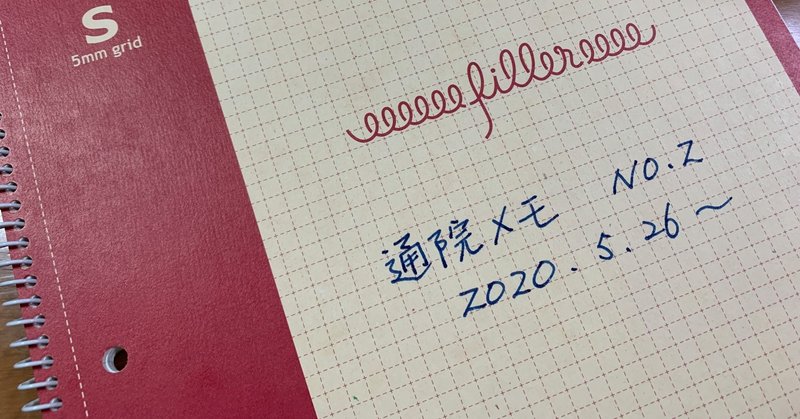 S
5mm grid
filler
通院メモ NO.2
2020.5.26～